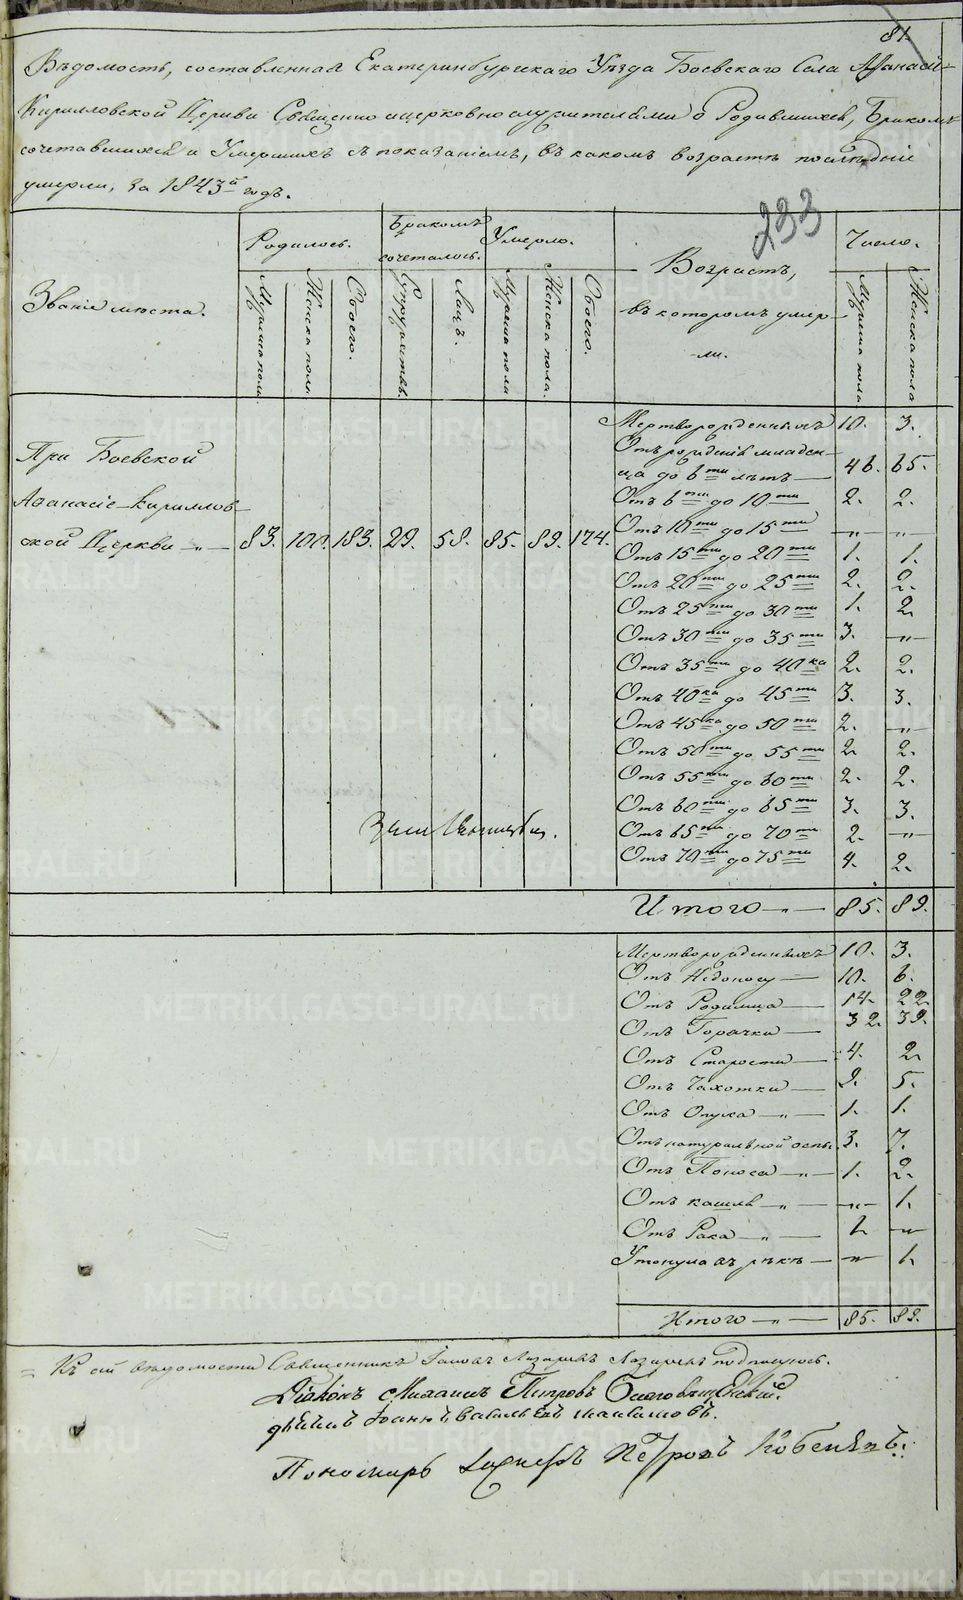 81.
Вѣдомость, составленная Екатеринбургскаго Уѣзда Боевскаго Села Аѳанасіе-
Кирилловской Церкви Священно и церковнослужителями о Родившихся, Бракомъ
сочетавшихся и Умершихъ съ показаніемъ, въ какомъ возрастѣ послѣдніе
умерли, за 1843й годъ.
233
Званіе мѣста.
Родилось.
Бракомъ сочеталось.
Умерло.
Возрастъ,
въ которомъ умер-
ли.
Число.
Мужеска пола.
Женска пола.
Обоего.
Супружествъ.
Лицъ.
Мужеска пола
Женска пола.
Обоего.
Мужеска пола
Женска пола
При Боевской
Аѳанасіе-Кириллов-
ской Церкви — " — 83. 100. 183. 29. 58. 85. 89. 174.
Мертворожденныхъ 10. 3.
Отъ рожденія младен-
ца до 6ти лѣтъ — 46. 65.
Отъ 6ти до 10ти 2. 2.
Отъ 10ти до 15ти — " — — " —
Отъ 15ти до 20ти 1. 1.
Отъ 20ти до 25ти 2. 2.
Отъ 25ти до 30ти 1. 2.
Отъ 30ти до 35ти 3. — " —
Отъ 35ти до 40ка 2. 2.
Отъ 40ка до 45ти 3. 3.
Отъ 45ти до 50ти 2. — " —
Отъ 50ти до 55ти 2. 2.
Отъ 55ти до 60ти 2. 2.
Отъ 60ти до 65ти 3. 3.
Отъ 65ти до 70ти 2. — " —
Отъ 70ти до 75ти 4. 2.
Итого — " — 85. 89.
Мертворожденныхъ 10. 3.
Отъ Недоносу — 10. 6.
Отъ Родимца — 14. 22.
Отъ Горячки — 32. 39.
Отъ Старости — 4. 2.
Отъ Чахотки — 9. 5.
Отъ Опуха — " — 1. 1.
Отъ натуральной оспы. 3. 7.
Отъ Поноса — " — 1. 2.
Отъ кашля — " — — " — 1.
Отъ Рака — " — 1. — " —
Утонула въ рѣкѣ — — " — 1.
Итого — " — 85. 89.
Къ сей вѣдомости Священникъ Іаковъ Лазаревъ Лазаревъ подписуюсь.
Діаконъ Михаилъ Петровъ
Іоаннъ Васильевъ
Пономарь Петровъ
METRIKI.GASO-URAL.RU